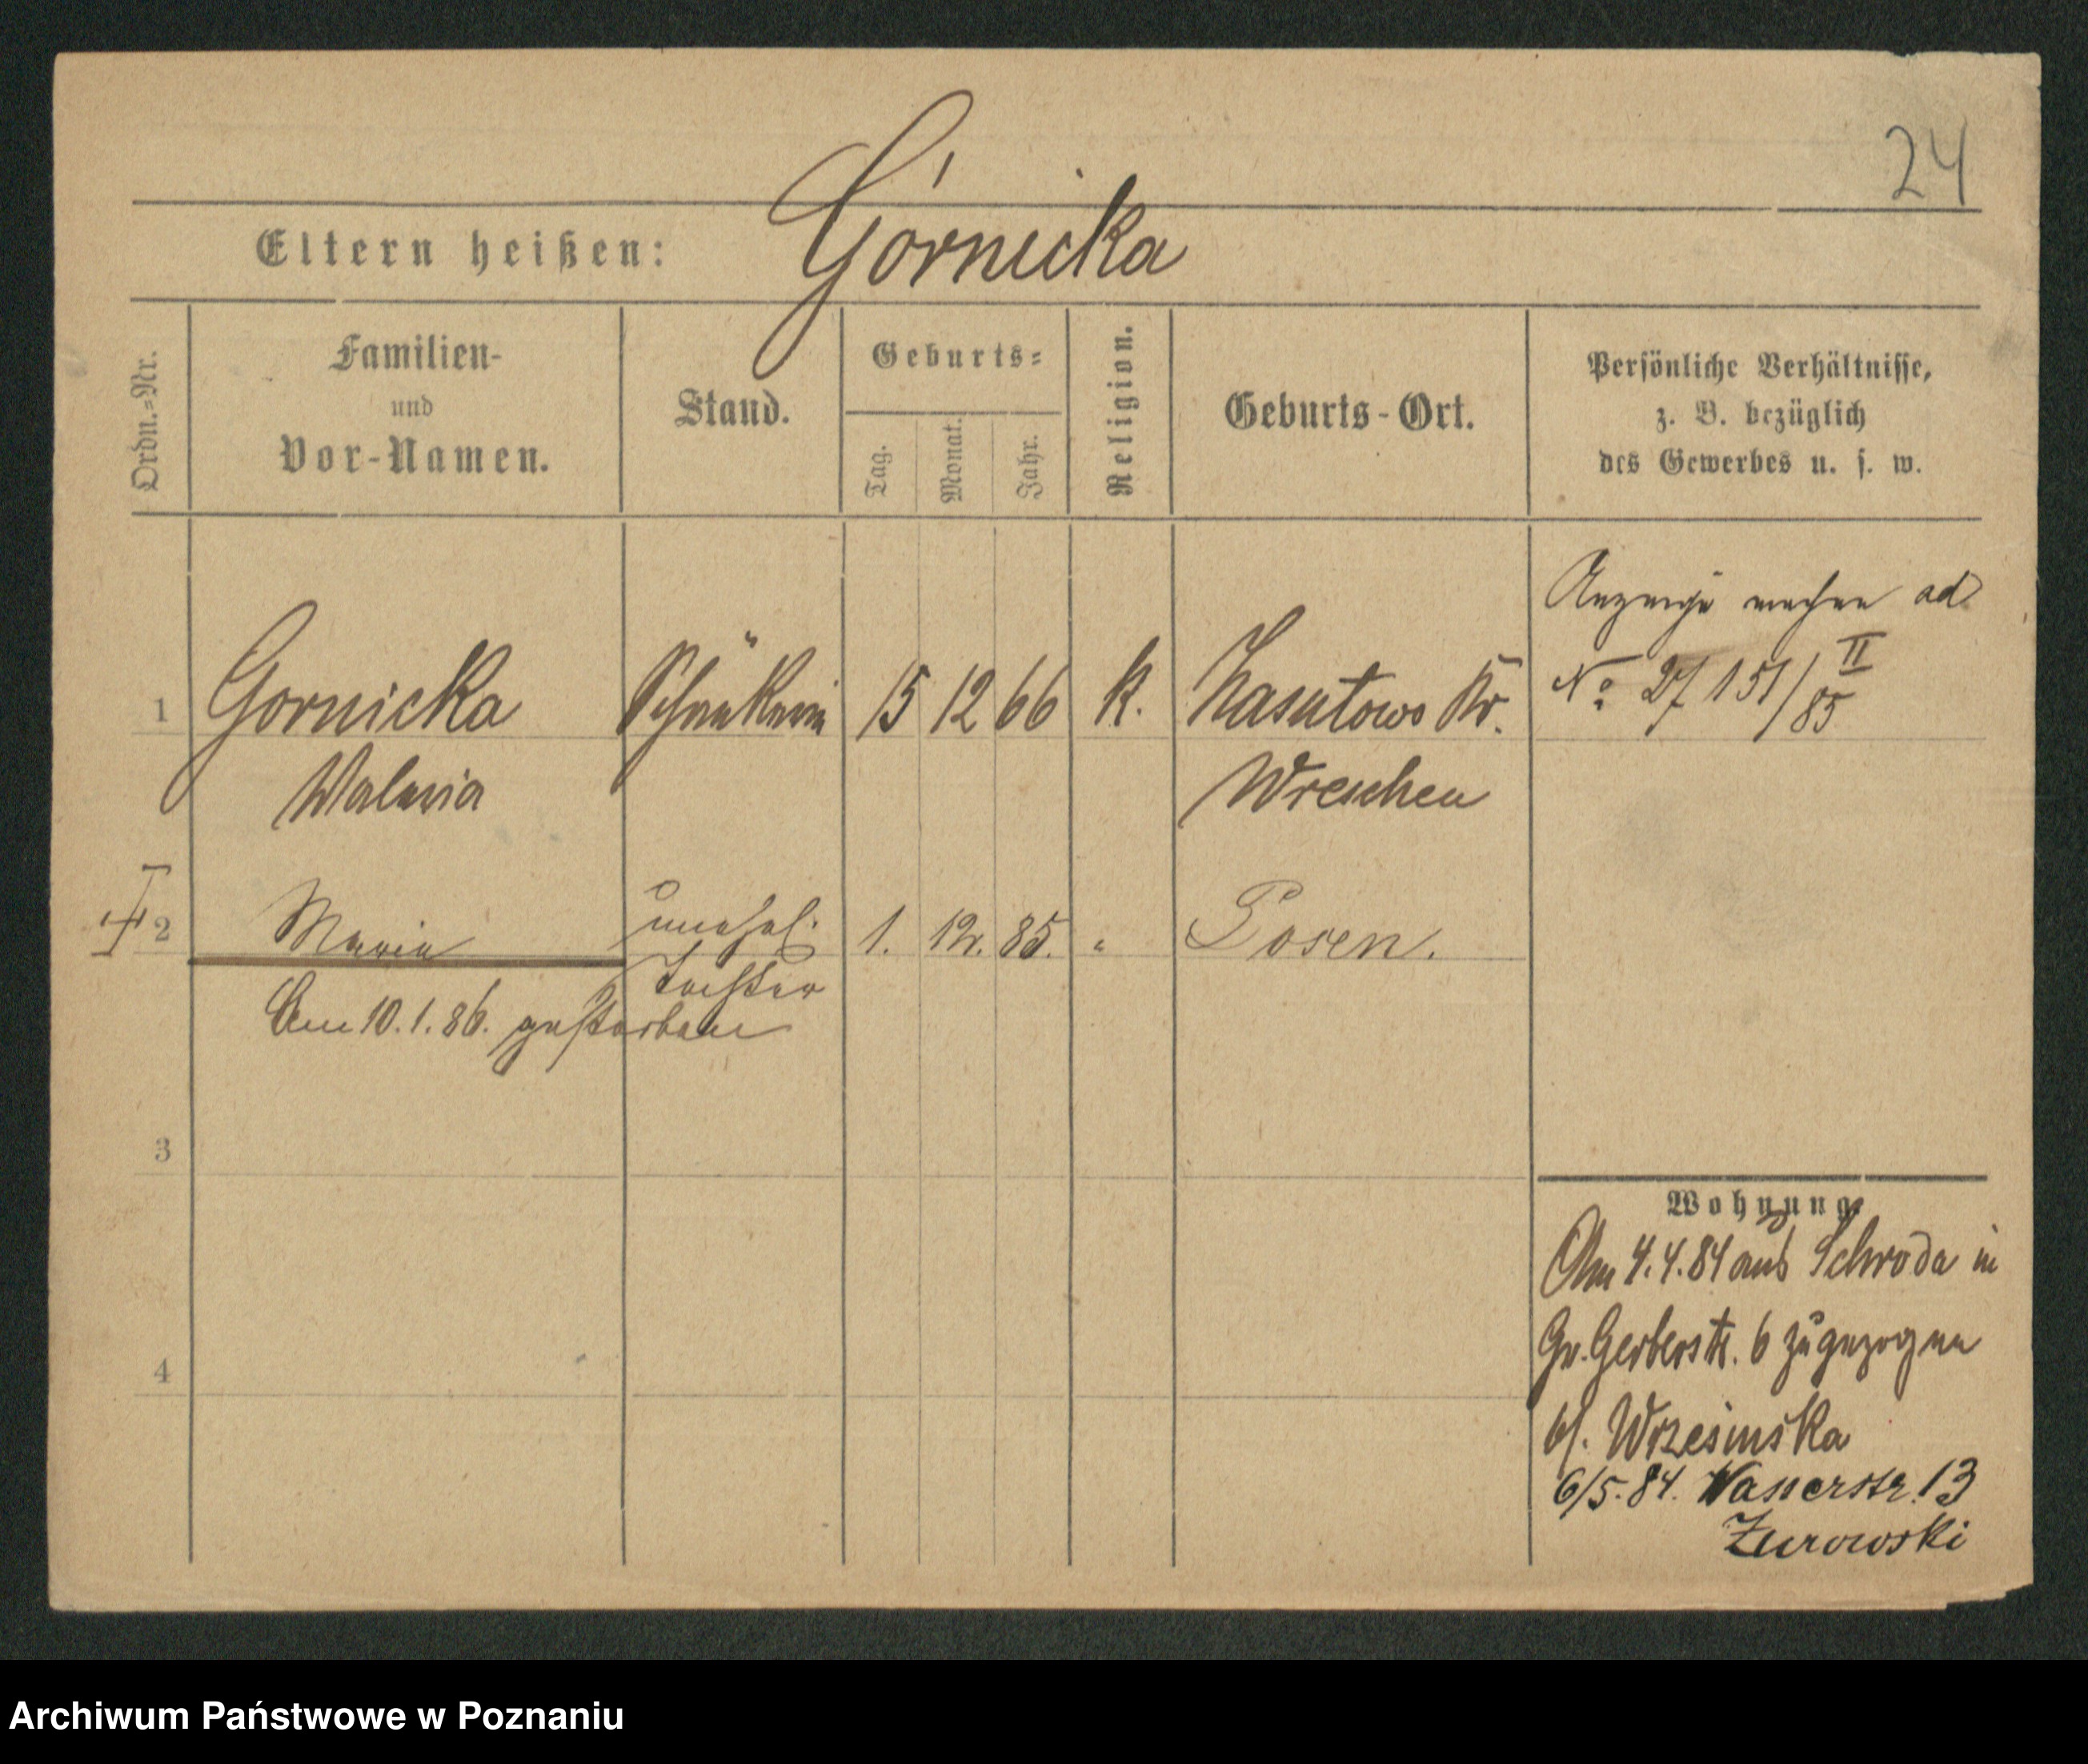 24
Eltern heißen: Górnicka
Ordn.=Nr.
Familien-
und
Vor-Namen.
Stand.
Geburts=
Tag.
Monat.
Jahr.
Religion.
Geburts-Ort.
Persönliche Verhältnisse,
z. B. bezüglich
des Gewerbes u. s. w.
Anzeige machen ad
No 27151/II 85
1 Gornicka Schänkerin 15 12 66 K. Zasutowo Kr.
Waleria Wreschen
2 Maria unehel. 1. 12. 85. " Posen.
Tochter
Am 10.1.86. gestorben
3
4
Wohnung
Am 4.4.84 aus Schroda in
Gr. Gerberstr. 6 zugezogen
bei Wrzesinska
6/5.84. Wasserstr. 13
Zurowski
Archiwum Państwowe w Poznaniu